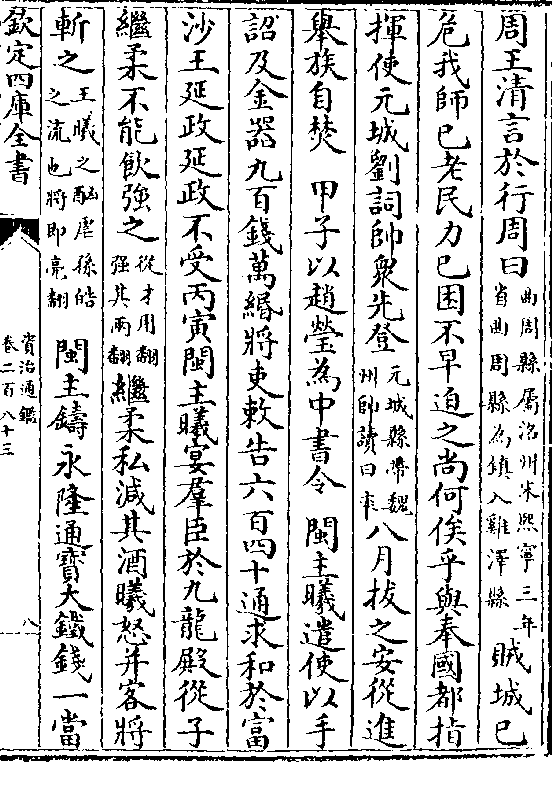 周王清言於行周曰曲周縣屬洺州宋熙寧三年省曲周縣為鎮入雞澤縣賊城已
危我師已老民力已困不早迫之尚何俟乎與奉國都指
揮使元城劉詞帥衆先登元城縣帶魏州帥讀曰率八月拔之安從進
舉族自焚 甲子以趙瑩為中書令 閩主曦遣使以手
詔及金器九百錢萬緡將吏敕告六百四十通求和於富
沙王延政延政不受丙寅閩主曦宴羣臣於九龍殿從子
繼柔不能飲強之從才用翻強其兩翻繼柔私減其酒曦怒并客將
斬之王曦之酗虐孫皓之流也將即亮翻 閩主鑄永隆通寶大鐵錢一當
欽定四庫全書
資治通鑑
卷二百八十三
八